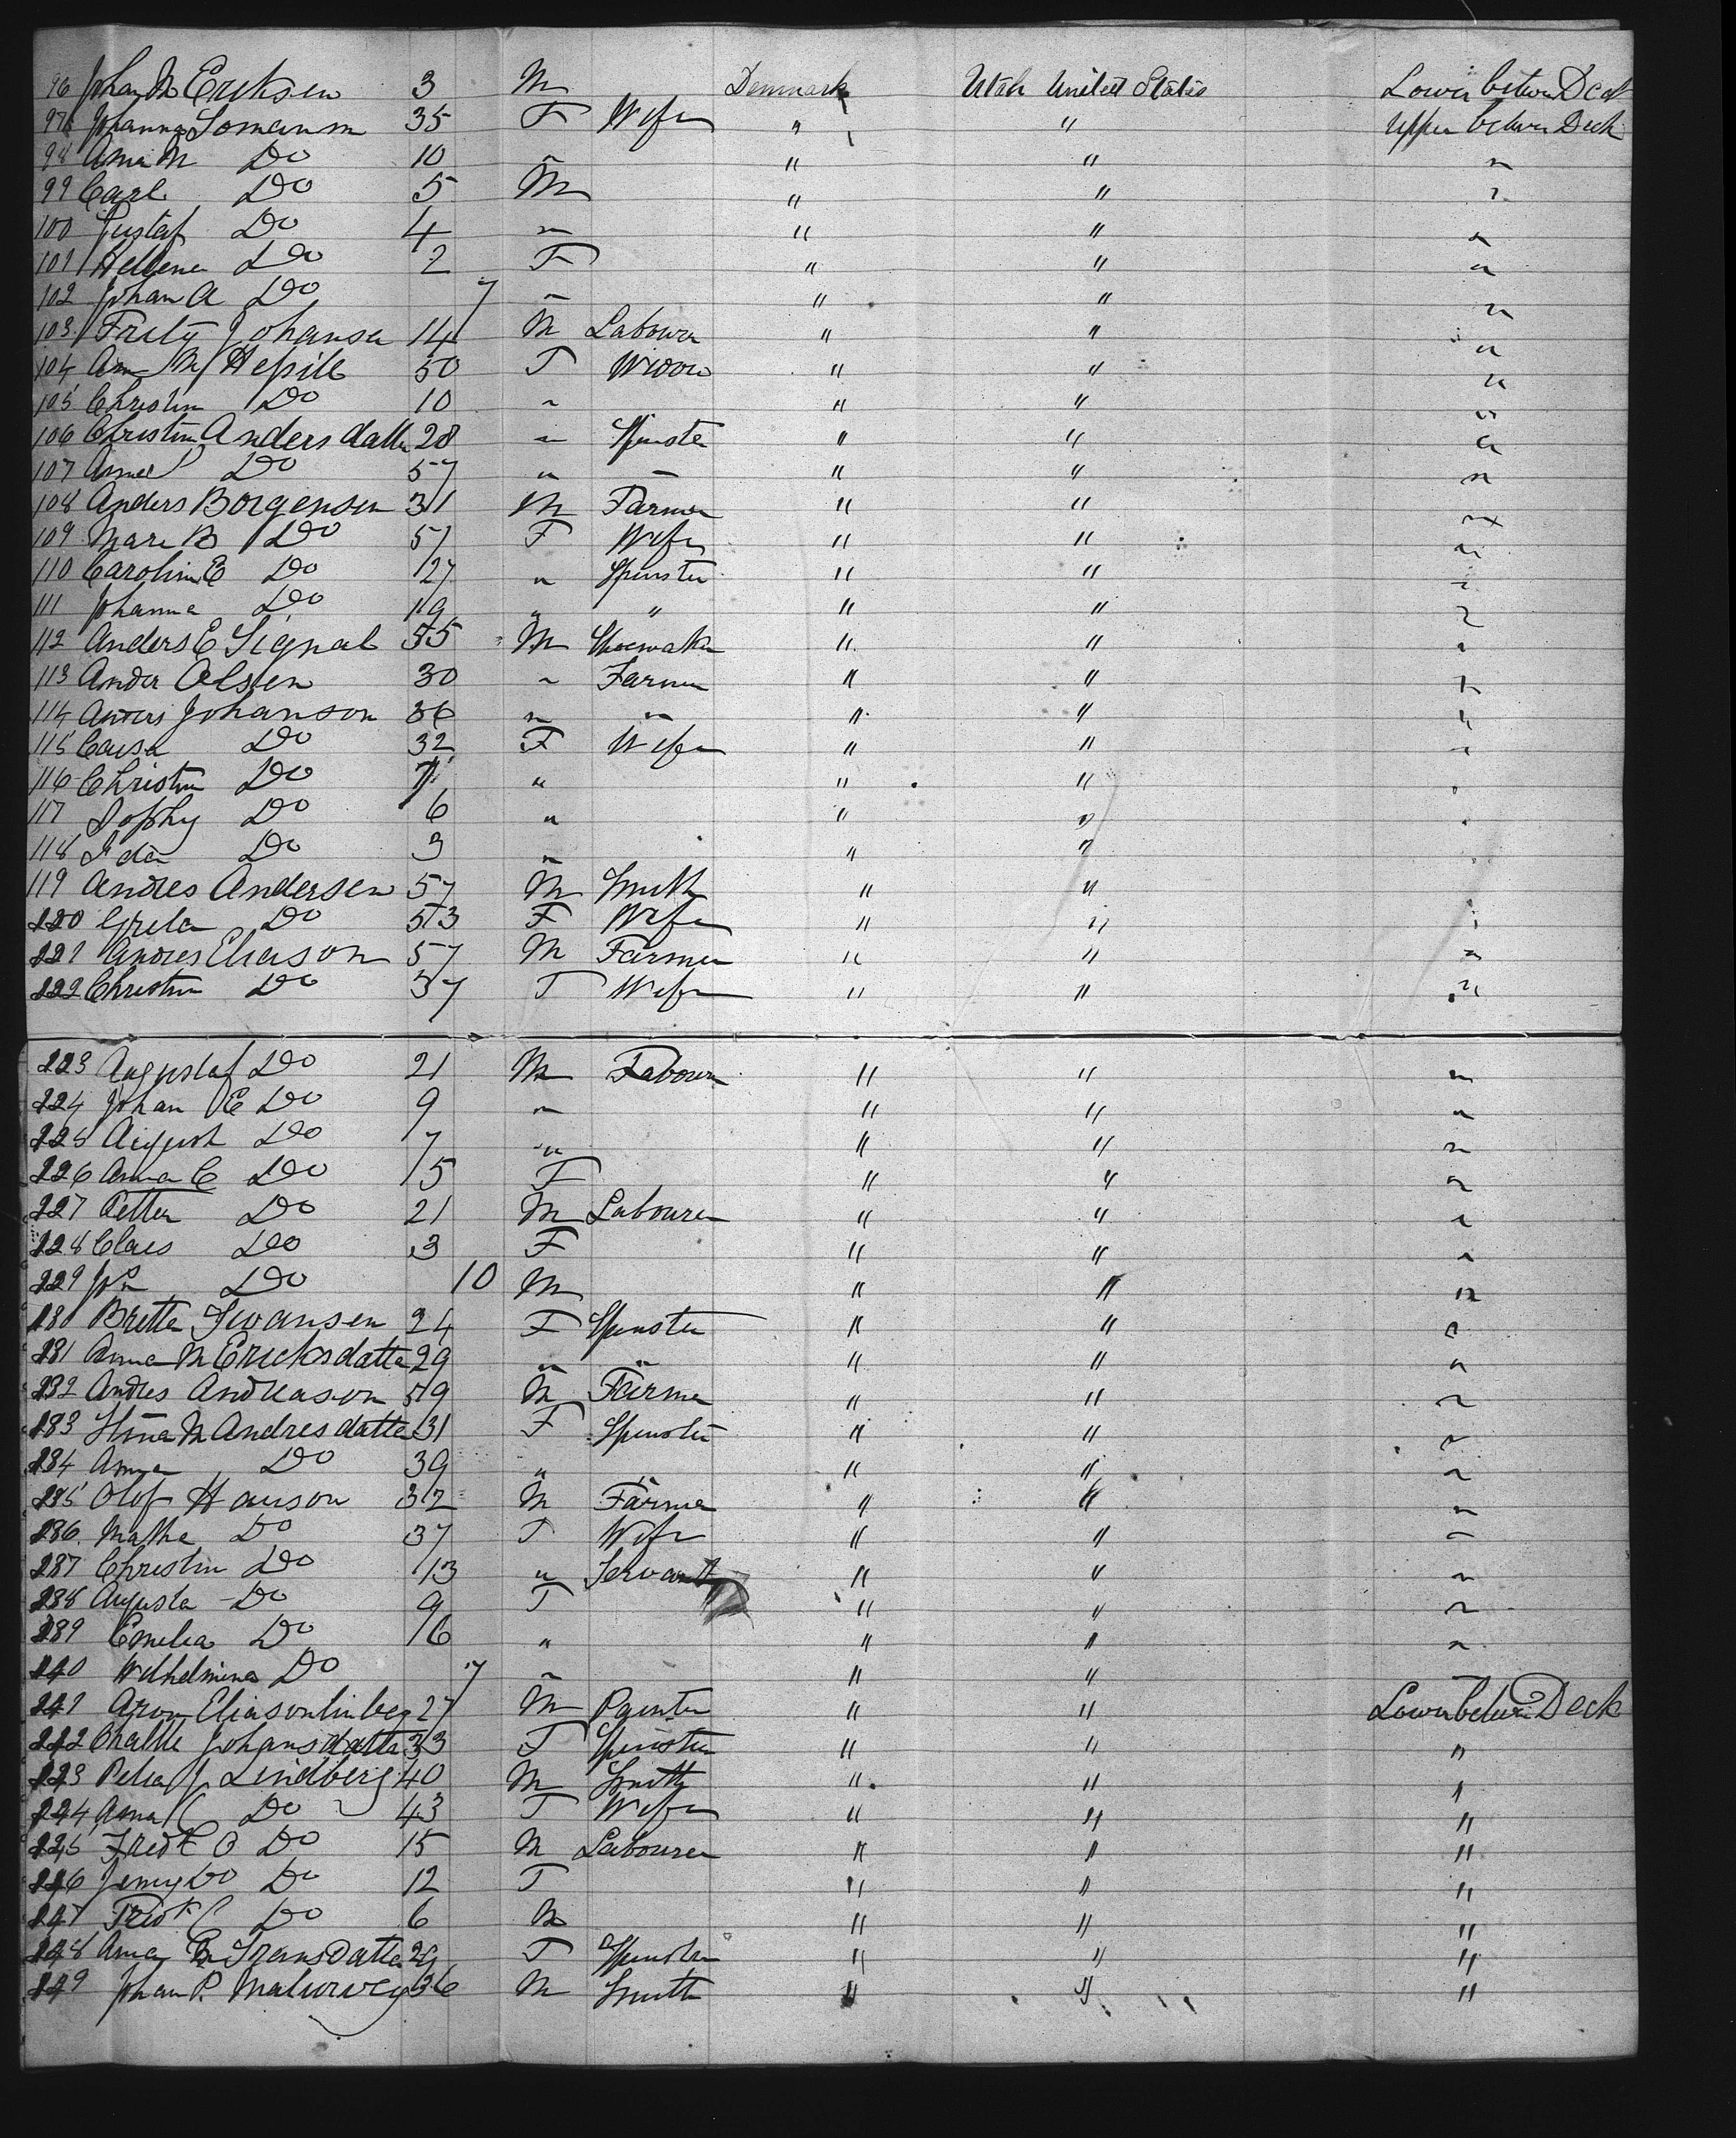 96 Johan M Eriksen 3 M Denmark Utah United States Lower betwen Deck
97 Johanna Somanm 35 F Wife " " Upper betwen Deck
98 Ana M Do 10 " " " "
99 Carl Do 5 M " " "
100 Gustaf Do 4 " " " "
101 Hellena Do 2 F " " "
102 Johan A Do 7 " " " "
103 Fritz Johansen 14 M Labourer " " "
104 Ann M 50 F Widow " " "
105 Christin Do 10 " " " "
106 Christin Andersdatter 28 " Spinster " " "
107 Do 57 " " " "
108 Anders Borgensen 31 M Farmer " " "
109 Mare B Do 57 F Wife " " "
110 Caroline E Do 27 " Spinster " " "
111 Johanna Do 19 " " " " "
112 Anders E Signal 55 M Shoemaker " " "
113 Ander Olsen 30 " Farmer " " "
114 Anders Johanson 36 " " " " "
115 Caisa Do 32 F Wife " " "
116 Christin Do 7 " " " "
117 Sophy Do 6 " " " "
118 Ida Do 3 " " " "
119 Andres Andersen 57 M Smith " " "
220 Greta Do 53 F Wife " " "
221 Andres Eliason 57 M Farmer " " "
222 Christin Do 37 F Wife " " "
223 Augustaf Do 21 M Labourer " " "
224 Johan E Do 9 " " " "
225 August Do 7 " " " "
226 Anna C Do 15 F " " "
227 Petter Do 21 M Labourer " " "
228 Claes Do 3 F " " "
229 Jon Do 10 M " " "
230 Britta Swansen 24 F Spinster " " "
231 Anna M Ericksdatter 29 " " " " "
232 Andres Andreason 59 M Farmer " " "
233 Stina M Andresdatter 31 F Spinster " " "
234 Anna Do 39 " " " " "
235 Olof Hanson 32 M Farmer " " "
236 Matha Do 37 F Wife " " "
237 Christin Do 13 " Servant " " "
238 Augusta Do 9 F " " "
239 Emelia Do 6 " " " "
240 Wilhelmina Do 7 " " " "
241 Aron Eliasonlinberg 27 M Painter " " Lower betwen Deck
242 Johansdatter 33 F Spinster " " "
243 Peter J Lindberg 40 M Smith " " "
244 Anna C Do 43 F Wife " " "
245 Fredk O Do 15 M Labourer " " "
246 Jenny Do Do 12 F " " "
247 Fredk C Do 6 M " " "
248 Anna Fransdatter 29 F Spinster " " "
249 Johan P. 36 M Smith " " "